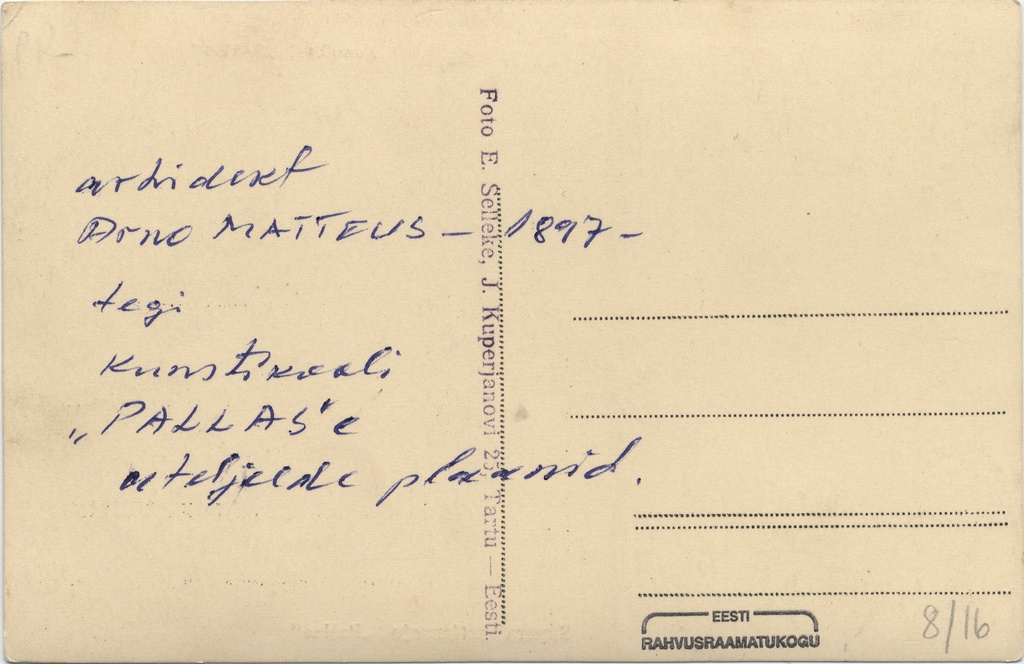 arhidekt
Arno MATTEUS – 1897 –
tegi
Kunstikooli
„PALLAS"e
ateljeede plaanid.
Foto E. Selleke, J. Kuperjanovi 23, Tartu — Eesti
EESTI
RAHVUSRAAMATUKOGU
8/16